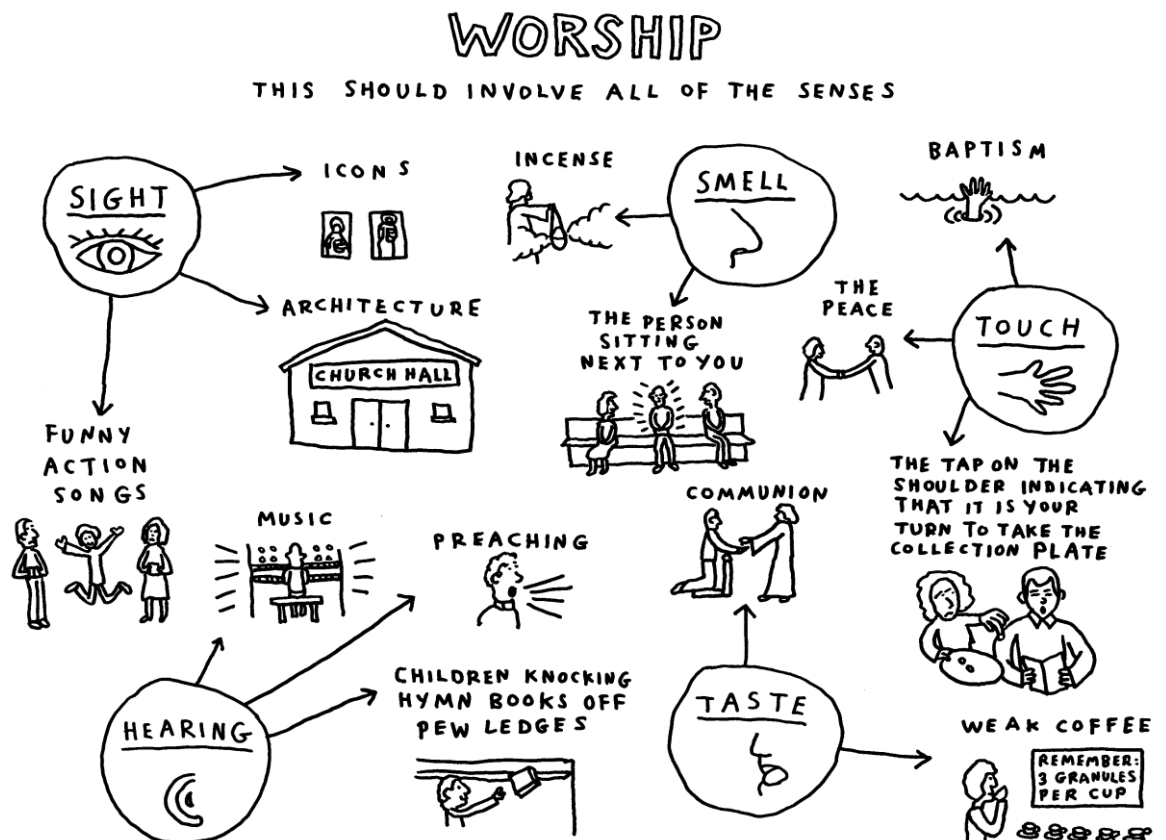 WORSHIP
THIS SHOULD INVOLVE ALL OF THE SENSES
SIGHT
ICONS
ARCHITECTURE
CHURCH HALL
FUNNY
ACTION
SONGS
SMELL
INCENSE
THE PERSON
SITTING
NEXT TO YOU
TOUCH
BAPTISM
THE
PEACE
THE TAP ON THE
SHOULDER INDICATING
THAT IT IS YOUR
TURN TO TAKE THE
COLLECTION PLATE
HEARING
MUSIC
PREACHING
CHILDREN KNOCKING
HYMN BOOKS OFF
PEW LEDGES
TASTE
COMMUNION
WEAK COFFEE
REMEMBER:
3 GRANULES
PER CUP